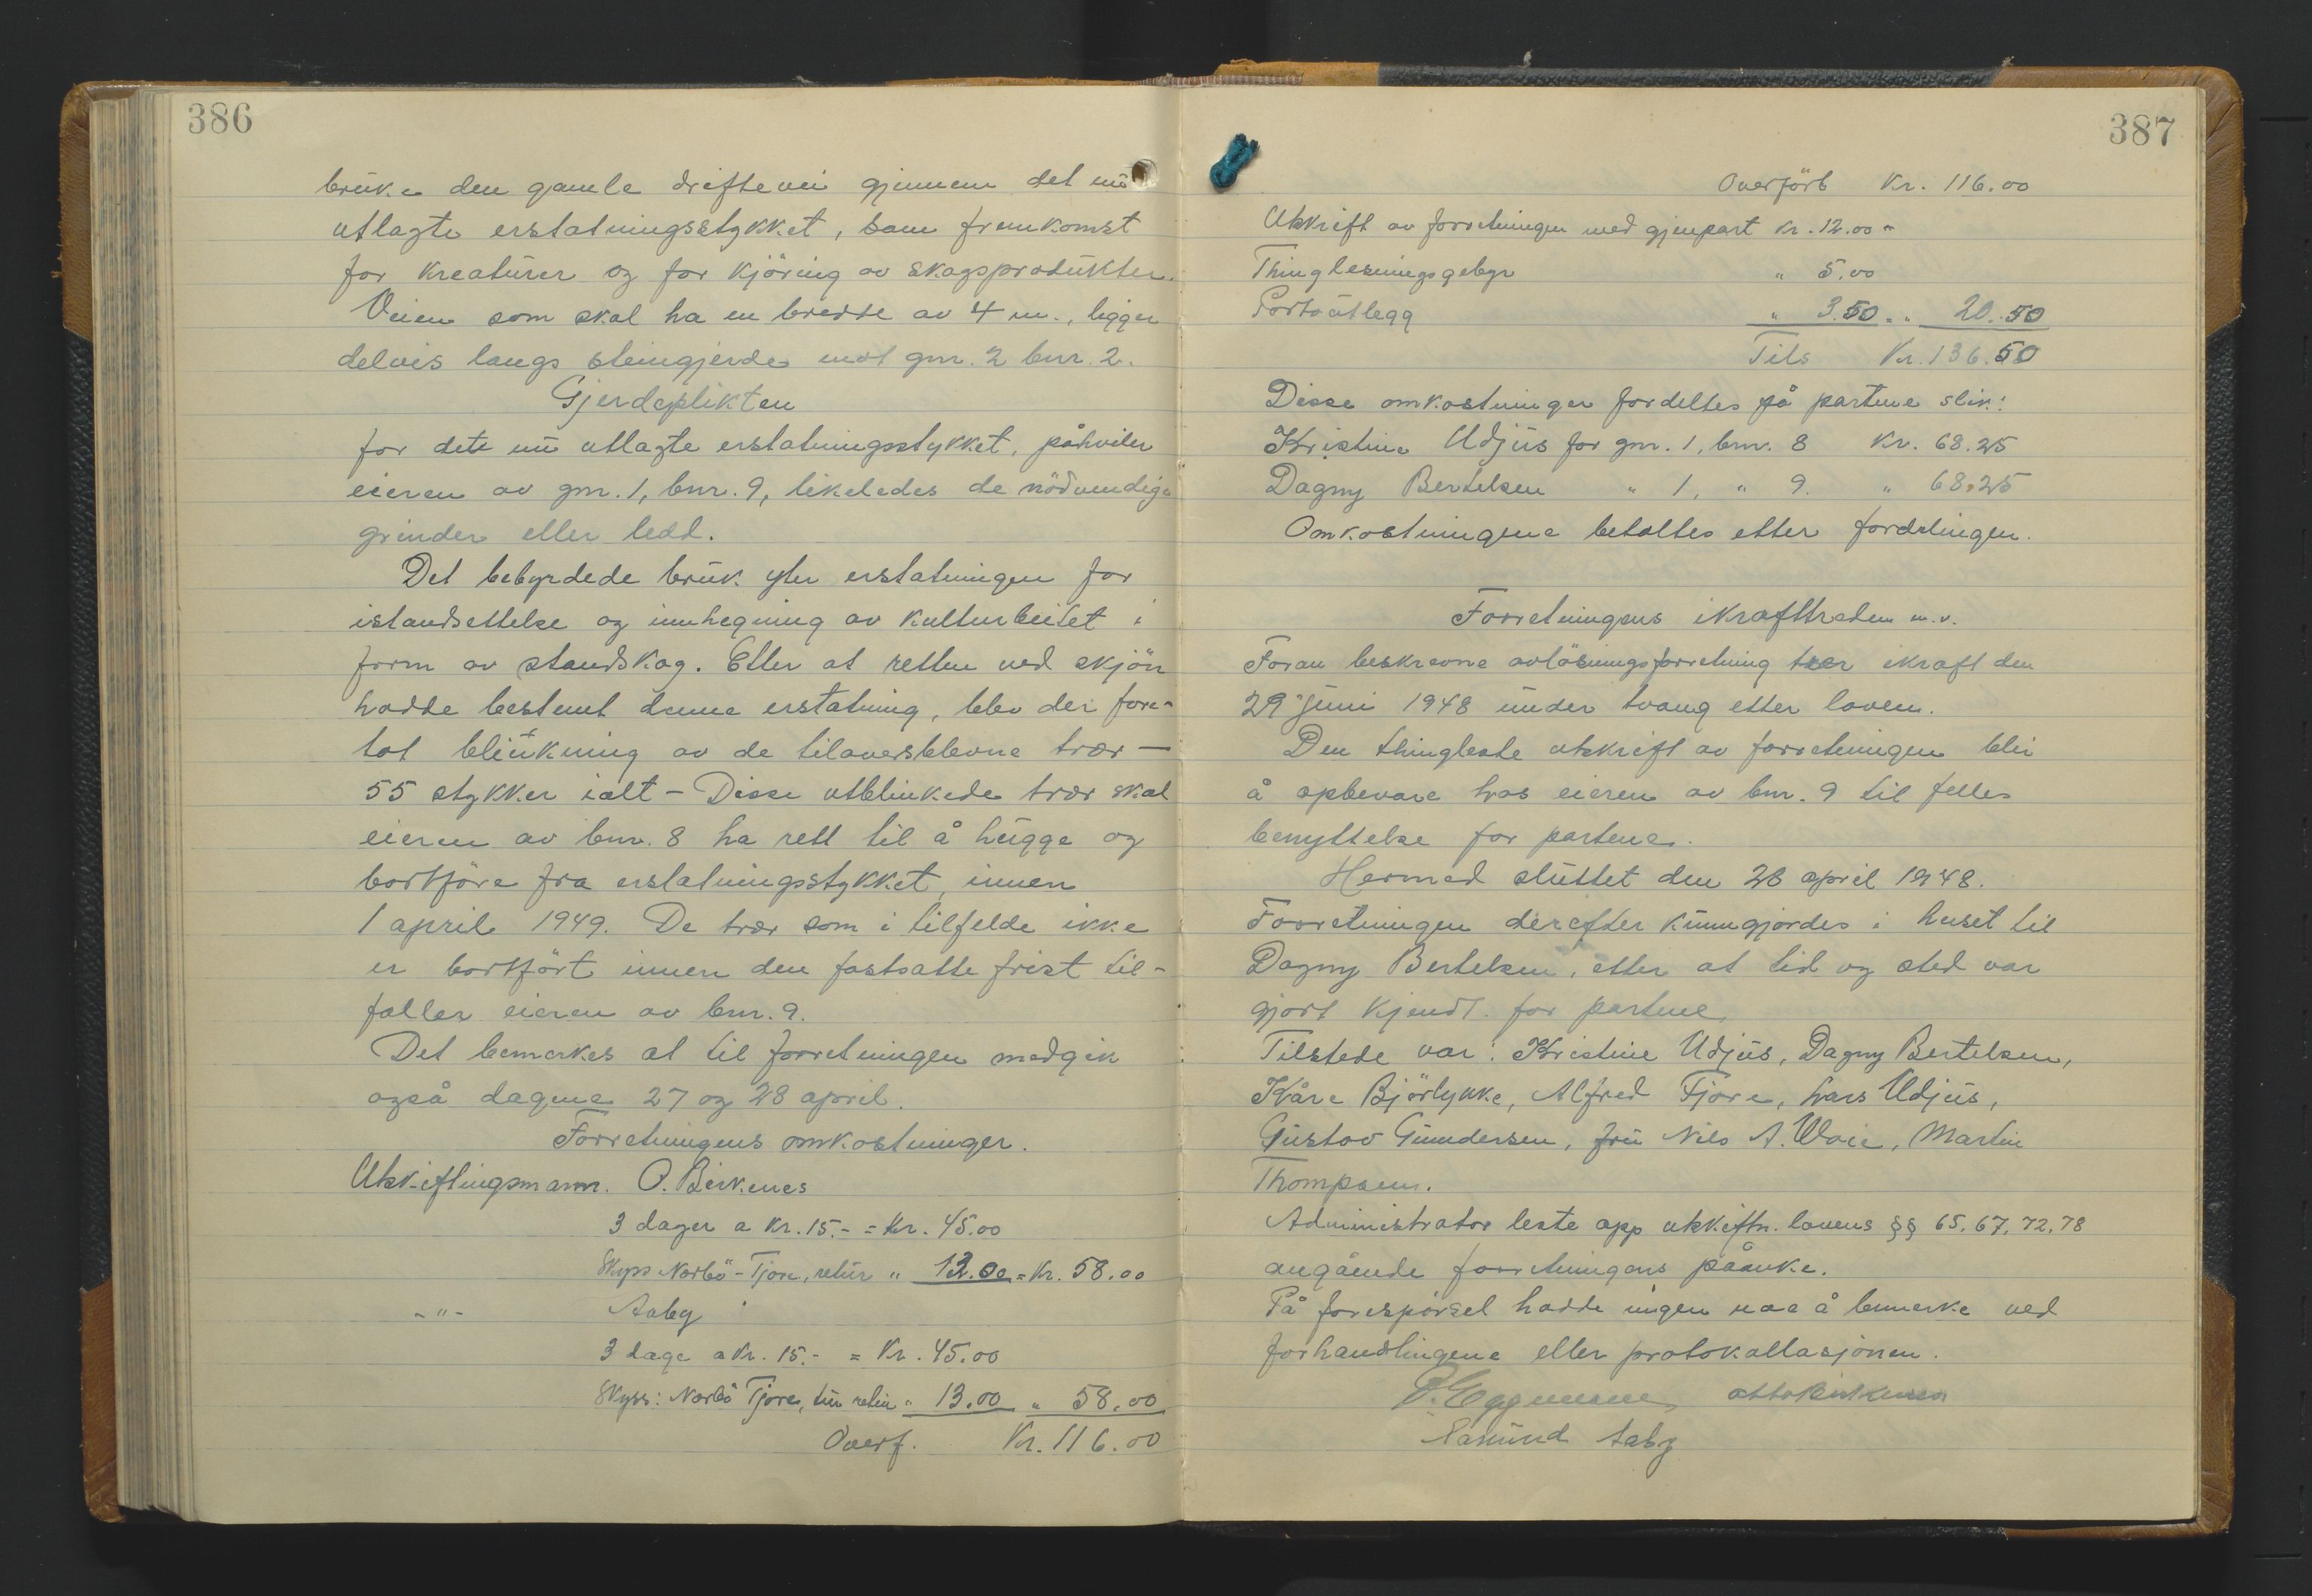 386
bruke den gamle driftevei gjennem det nu
utlagte erstatningsstykket, som fremkomst
for kreaturer og for kjöring av skogsprodukter.
Veien som skal ha en bredde av 4 m., ligger
delvis langs steingjerde mot gnr. 2 bnr. 2.
Gjerdeplikten
for dete nu utlagte erstatningsstykket, påhviler
eieren av gnr. 1, bnr. 9, likeledes de nödvendige
grinder eller ledd.
Det bebyrdede bruk yter erstatningen for
istandsettelse og innhegning av kulturbeitet i
form av standskog. Etter at retten ved skjön
hadde bestemt denne erstatning, blev der fore-
tat blinkning av de tiloversblevne trær —
55 stykker ialt - Disse utblinkede trær skal
eieren av bnr. 8 ha rett til å hugge og
bortföre fra erstatningsstykket, innen
1 april 1949. De trær som i tilfelde ikke
er bortfört innen den fastsatte frist til-
faller eieren av bnr. 9.
Det bemerkes at til forretningen medgik
også dagene 27 og 28 april.
Forretningens omkostninger.
Utskiftingsmann. O. Birkenes
3 dager a kr. 15.- = kr. 45.00
Skyss Norbö - Tjore, retur " 13.00 = Kr. 58.00
- " - Aaby
3 dage a kr. 15.- = Kr. 45.00
Skyss: Norbö Tjore, tur retur " 13.00 " 58.00
Overf. Kr. 116.00
387
Overfört Kr. 116.00
Utskrift av forretningen med gjenpart kr. 12.00 "
Thinglesningsgebyr " 5.00
Portoutlegg " 3.50 = " 20.50
Tils Kr. 136.50
Disse omkostninger fordeltes på partene slik:
Kristine Udjus for gnr. 1, bnr. 8 Kr. 68.25
Dagny Bertelsen " 1, " 9. " 68.25
Omkostningene betaltes etter fordelingen.
Forretningens ikrafttreden m.v.
Foran beskrevne avlösningsforretning trær ikraft den
29 juni 1948 under tvang etter loven.
Den thingleste utskrift av forretningen blir
å opbevare hos eieren av bnr. 9 til felles
benyttelse for partene.
Hermed sluttet den 28 april 1948.
Forretningen derefter kunngjordes i huset til
Dagny Bertelsen, etter at tid og sted var
gjort kjendt for partene.
Tilstede var: Kristine Udjus, Dagny Bertelsen,
Kåre Björlykke, Alfred Tjore, Lars Udjus,
Gustav Gundersen, fru Nils A. Waie, Martin
Thompsen.
Administrator leste opp utskiftn. lovens §§ 65, 67, 72, 78
angående forretningens påanke.
På forespörsel hadde ingen noe å bemerke ved
forhandlingene eller protokollasjonen.
Otto Birkenes
Aaby